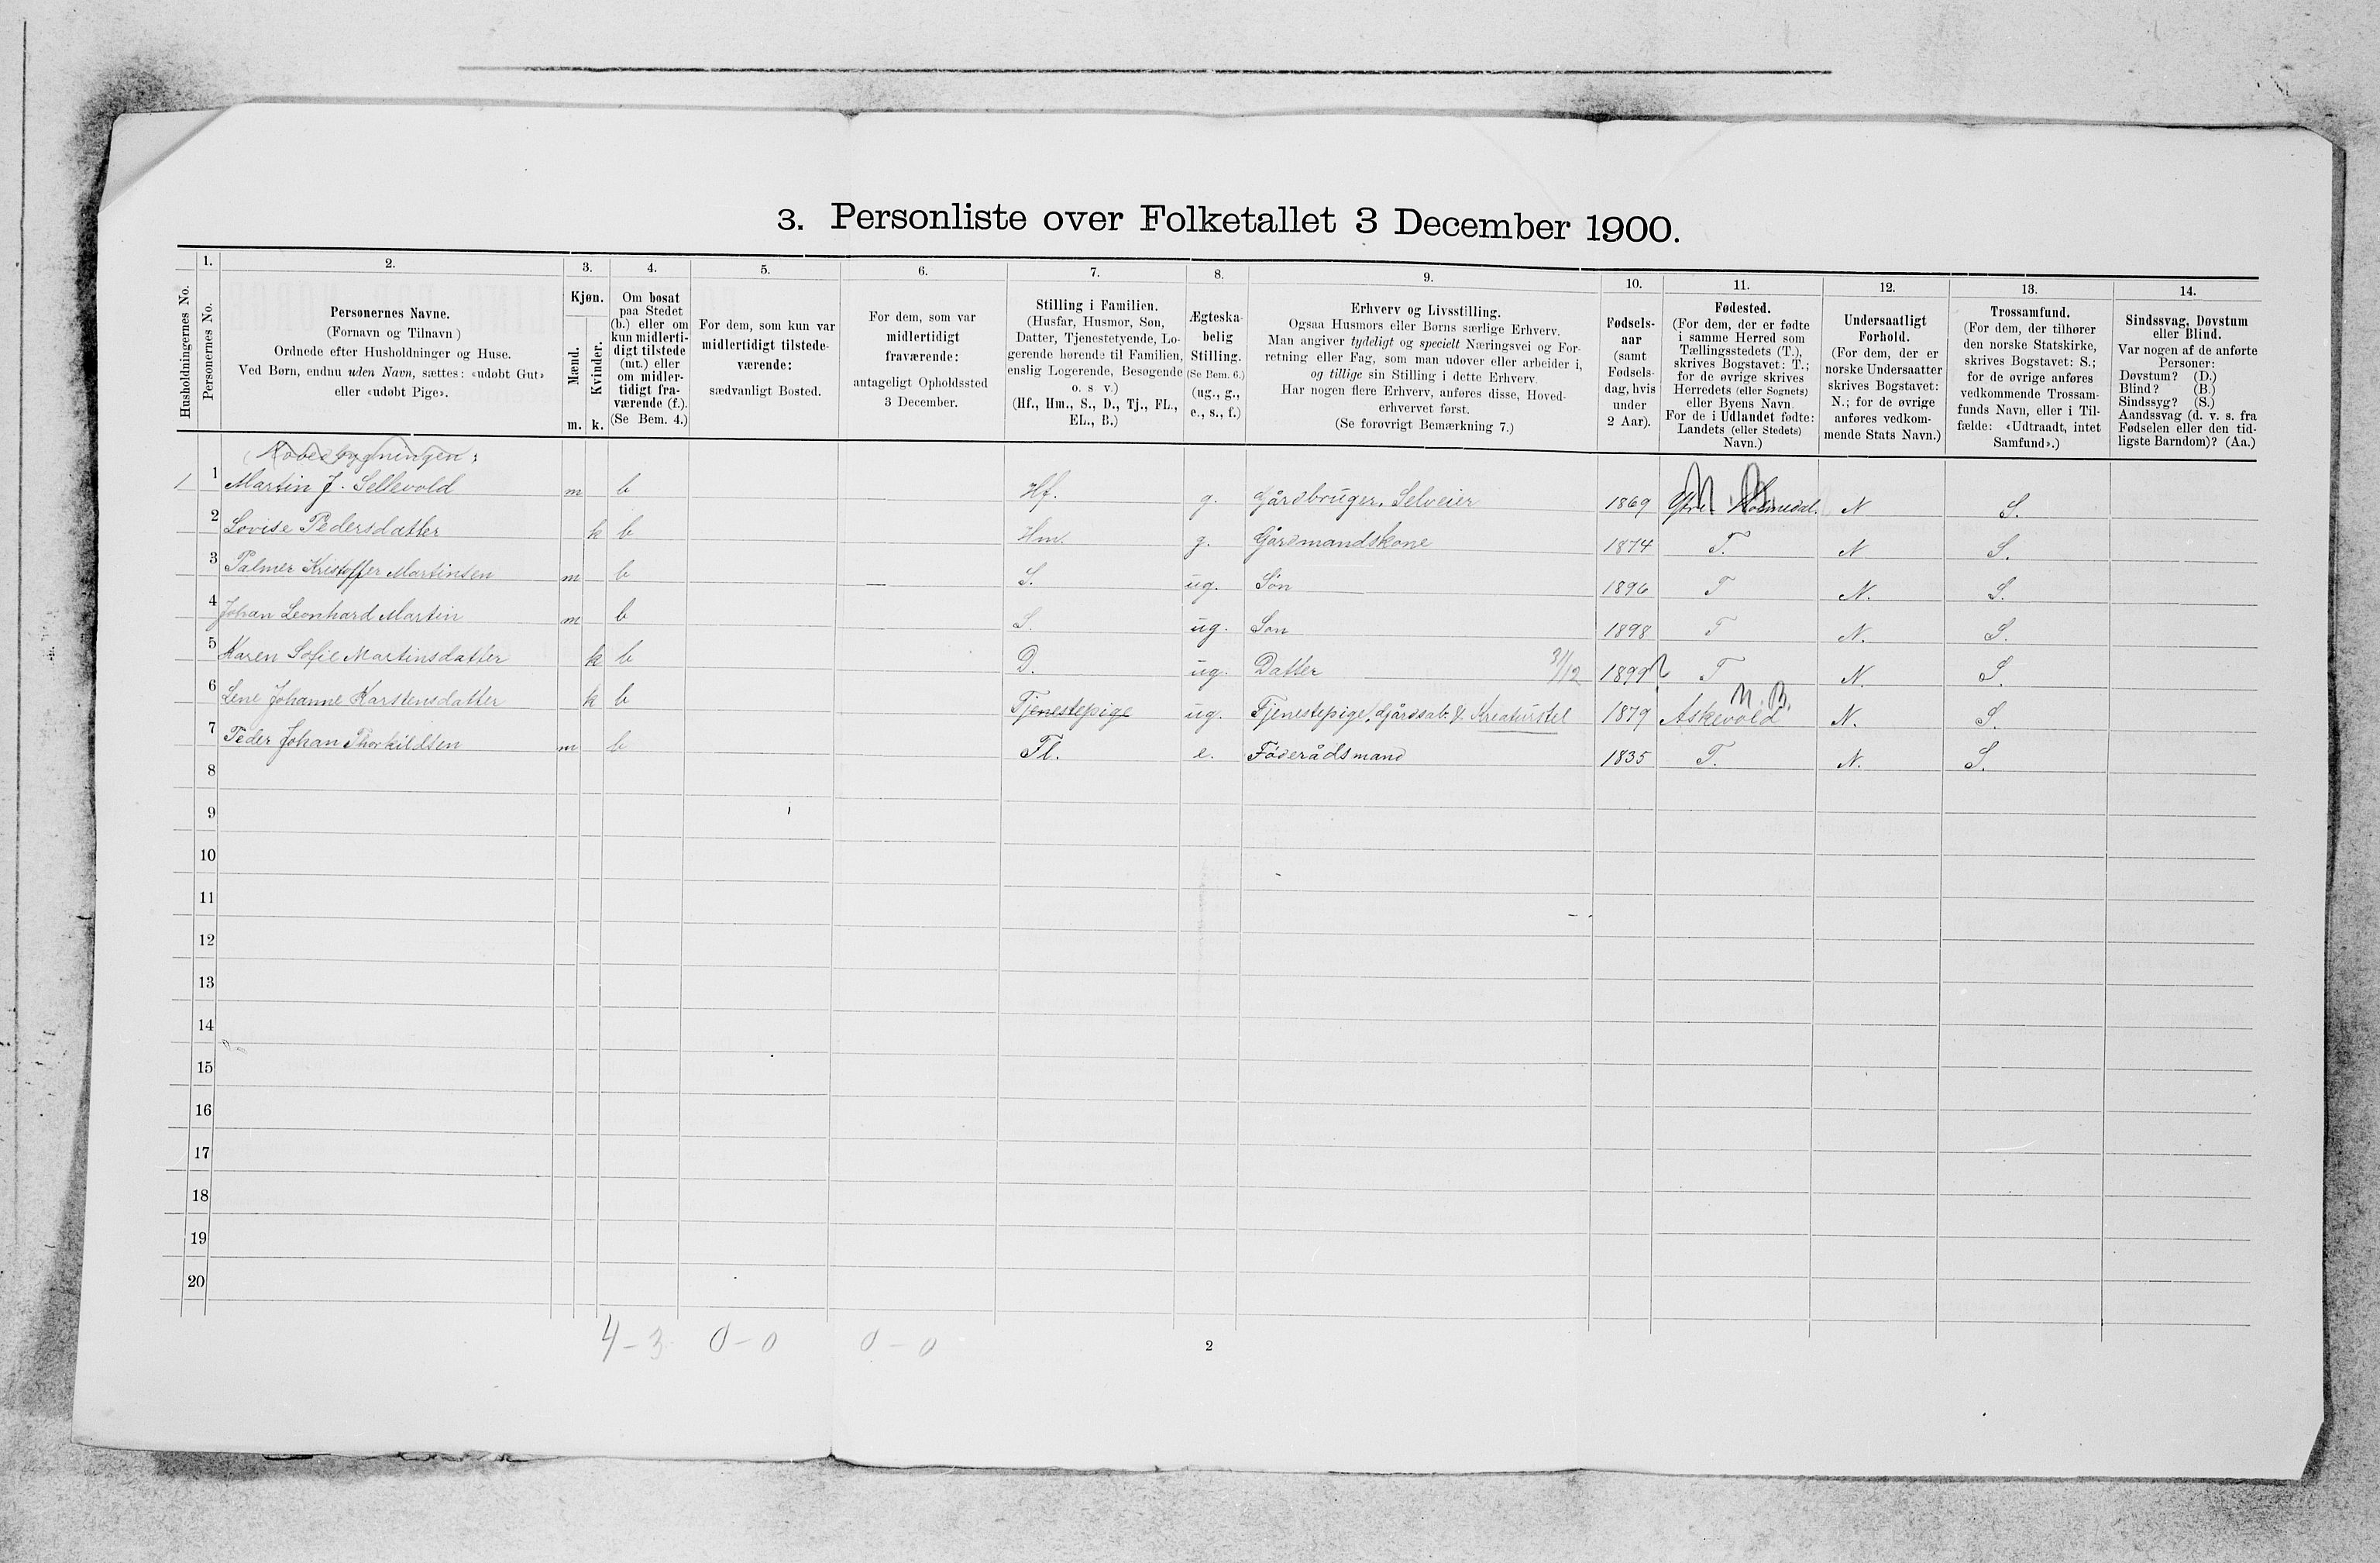 3. Personliste over Folketallet 3 December 1900.
1. 2. 3. 4. 5. 6. 7. 8. 9. 10. 11. 12. 13. 14.
Husholdningernes No.
Personernes No.
Personernes Navne.
(Fornavn og Tilnavn)
Ordnede efter Husholdninger og Huse.
Ved Børn, endnu uden Navn, sættes: «udøbt Gut»
eller «udøbt Pige».
Kjøn.
Mænd.
Kvinder.
m. k.
Om bosat
paa Stedet
(b.) eller om
kun midlerti-
digt tilstede
(mt.) eller
om midler-
tidigt fra-
værende (f.).
(Se Bem. 4.)
For dem, som kun var
midlertidigt tilstede-
værende:
sædvanligt Bosted.
For dem, som var
midlertidigt
fraværende:
antageligt Opholdssted
3 December.
Stilling i Familien.
(Husfar, Husmor, Søn,
Datter, Tjenestetyende, Lo-
gerende hørende til Familien,
enslig Logerende, Besøgende
o. s v.)
(Hf., Hm., S., D., Tj., FL.,
EL., B.)
Ægteska-
belig
Stilling.
(Se Bem. 6.)
(ug., g.,
e., s., f.)
Erhverv og Livsstilling.
Ogsaa Husmors eller Børns særlige Erhverv.
Man angiver tydeligt og specielt Næringsvei og For-
retning eller Fag, som man udøver eller arbeider i,
og tillige sin Stilling i dette Erhverv.
Har nogen flere Erhverv, anføres disse, Hoved-
erhvervet først.
(Se forøvrigt Bemærkning 7.)
Fødsels-
aar
(samt
Fødsels-
dag, hvis
under
2 Aar).
Fødested.
(For dem, der er fødte
i samme Herred som
Tællingsstedets (T.),
skrives Bogstavet: T.;
for de øvrige skrives
Herredets (eller Sognets)
eller Byens Navn.
For de i Udlandet fødte:
Landets (eller Stedets)
Navn.)
Undersaatligt
Forhold.
(For dem, der er
norske Undersaatter
skrives Bogstavet:
N.; for de øvrige
anføres vedkom-
mende Stats Navn.)
Trossamfund.
(For dem, der tilhører
den norske Statskirke,
skrives Bogstavet: S.;
for de øvrige anføres
vedkommende Trossam-
funds Navn, eller i Til-
fælde: «Udtraadt, intet
Samfund».)
Sindssvag, Døvstum
eller Blind.
Var nogen af de anførte
Personer:
Døvstum? (D.)
Blind? (B.)
Sindssyg? (S.)
Aandssvag (d. v. s. fra
Fødselen eller den tid-
ligste Barndom)? (Aa.)
1 1 Martin J. Sellevold m b Hf. g. Gårdbruger, Selveier 1869 Ytre Holmedal. N S.
2 Lovise Pedersdatter k b Hm. g. Gårdmandskone 1874 T. N S.
3 Palmer Kristoffer Martinsen m b — S. ug. Søn 1896 T N. S.
4 Johan Leonhard Martin m b S. ug. Søn 1898 T N. S.
5 Karen Sofie Martinsdatter k b D. ug. Datter 31/12 1899 T N. S.
N. B.
6 Lene Johanne Karstensdatter k b Tjenestepige ug. Tjenestepige, Gårdsarb. & Kreaturstel 1879 Askevold N. S.
7 Peder Johan Thorkildsen m b Fl. e. Føderådsmand 1835 T. N. S.
8
9
10
11
12
13
14
15
16
17
18
19
20
4 - 3 0 - 0 0 - 0
2